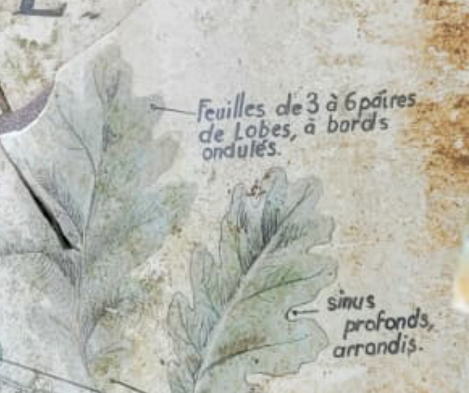 E.
Feuilles de 3 à 6 paires
de Lobes, à bords
ondulés.
sinus
profonds,
arrondis.